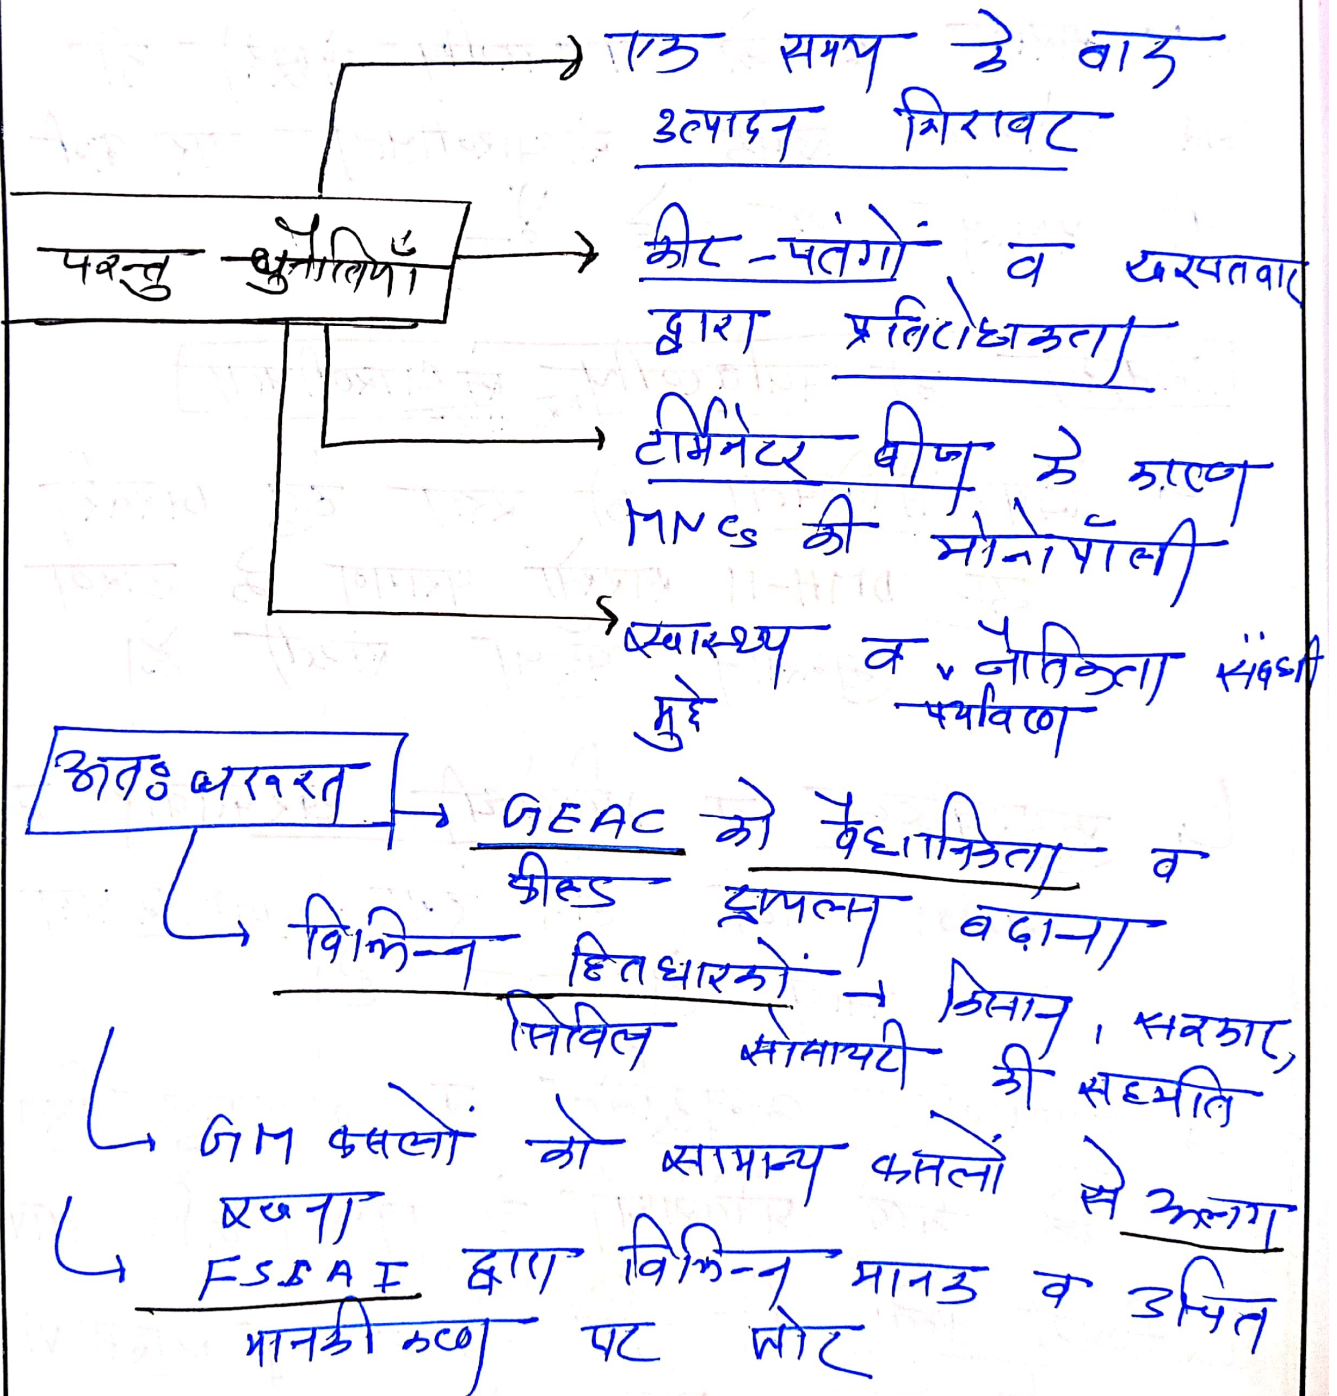 एक समय के बाद
उत्पादन गिरावट
परन्तु चुनौतियाँ
कीट-पतंगों व खरपतवार
द्वारा प्रतिरोधकता
टर्मिनेटर बीज के कारण
MNCs की मोनोपॉली
स्वास्थ्य व नैतिकता संबंधी
मुद्दे पर्यावरण
अतः जरूरत
GEAC को वैधानिकता व
फील्ड ट्रायल्स बढ़ाना
विभिन्न हितधारकों → किसान, सरकार,
सिविल सोसायटी की सहमति
GM फसलों को सामान्य फसलों से अलग
रखना
FSSAI द्वारा विभिन्न मानक व उचित
मानकीकरण पर जोर